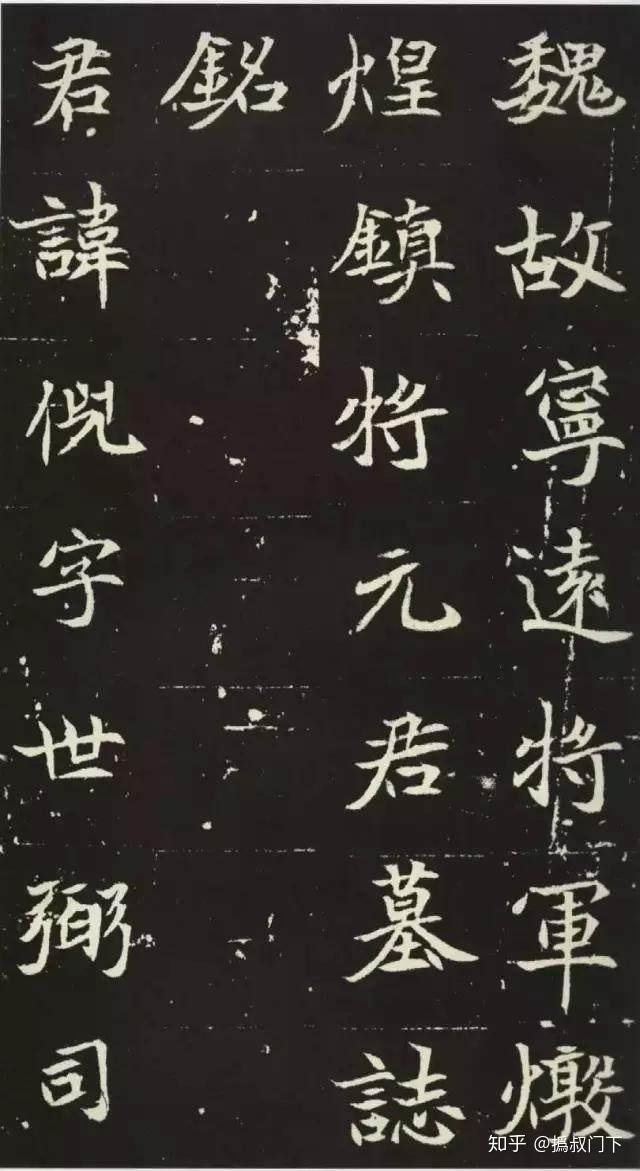 魏故寧遠將軍燉
煌鎮將元君墓誌
銘
君諱倪字世弼司
知乎 @搗叔门下